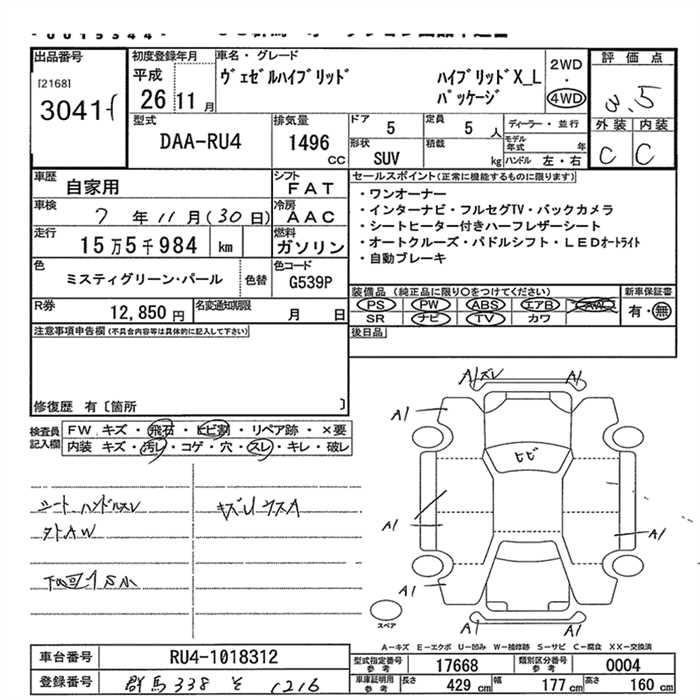 出品番号
[2168]
3041
初度登録年月
平成
26 11 月
車名・グレード
ヴェゼルハイブリッド
ハイブリッドX_L
パッケージ
2WD
・
4WD
評価点
3.5
外装 内装
C C
型式
DAA-RU4
排気量
1496
CC
ドア 5
定員 5 人
形状 SUV
積載 kg
ディーラー・並行
モデル年式 年
ハンドル 左・右
車歴 自家用
シフト FAT
車検 7 年 11 月 (30 日)
冷房 AAC
走行 15万5千984 km
燃料 ガソリン
色 ミスティグリーン・パール
色替
色コード G539P
R券 12,850 円
名変通知期限 月 日
セールスポイント(正常に機能するものに限り)
・ワンオーナー
・インターナビ・フルセグTV・バックカメラ
・シートヒーター付きハーフレザーシート
・オートクルーズ・パドルシフト・LEDオートライト
・自動ブレーキ
装備品(純正品に限り○をつけてください)
新車保証書
PS PW ABS エアB AAC
SR ナビ TV カワ
有・無
注意事項申告欄(不具合内容等は具体的に記入して下さい)
後日品
修復歴 有〔箇所 〕
検査員記入欄
FW キズ・飛石・ヒビ割・リペア跡・×要
内装 キズ・汚レ・コゲ・穴・スレ・キレ・破レ
シートハンドルスレ
キズUウスA
タトAW
A1
A1
A1
ヒビ
A1
A1
A1
A1
スペア
A-キズ E-エクボ U-凹み W-補修跡 S-サビ C-腐食 XX-交換済
車台番号 RU4-1018312
登録番号 群馬 338 そ 1216
型式指定番号 参考 17668
類別区分番号 参考 0004
車庫証明用 参考 長さ 429 cm 幅 177 cm 高さ 160 cm